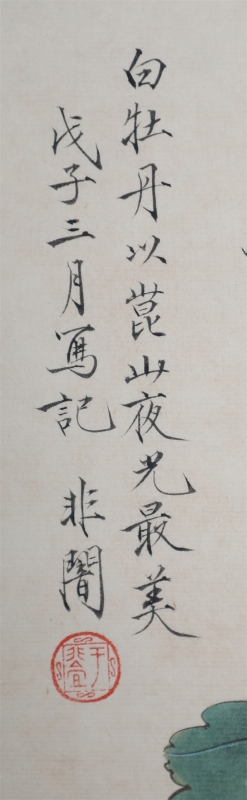 白牡丹以菎山夜光最美
戊子三月写記 非闇